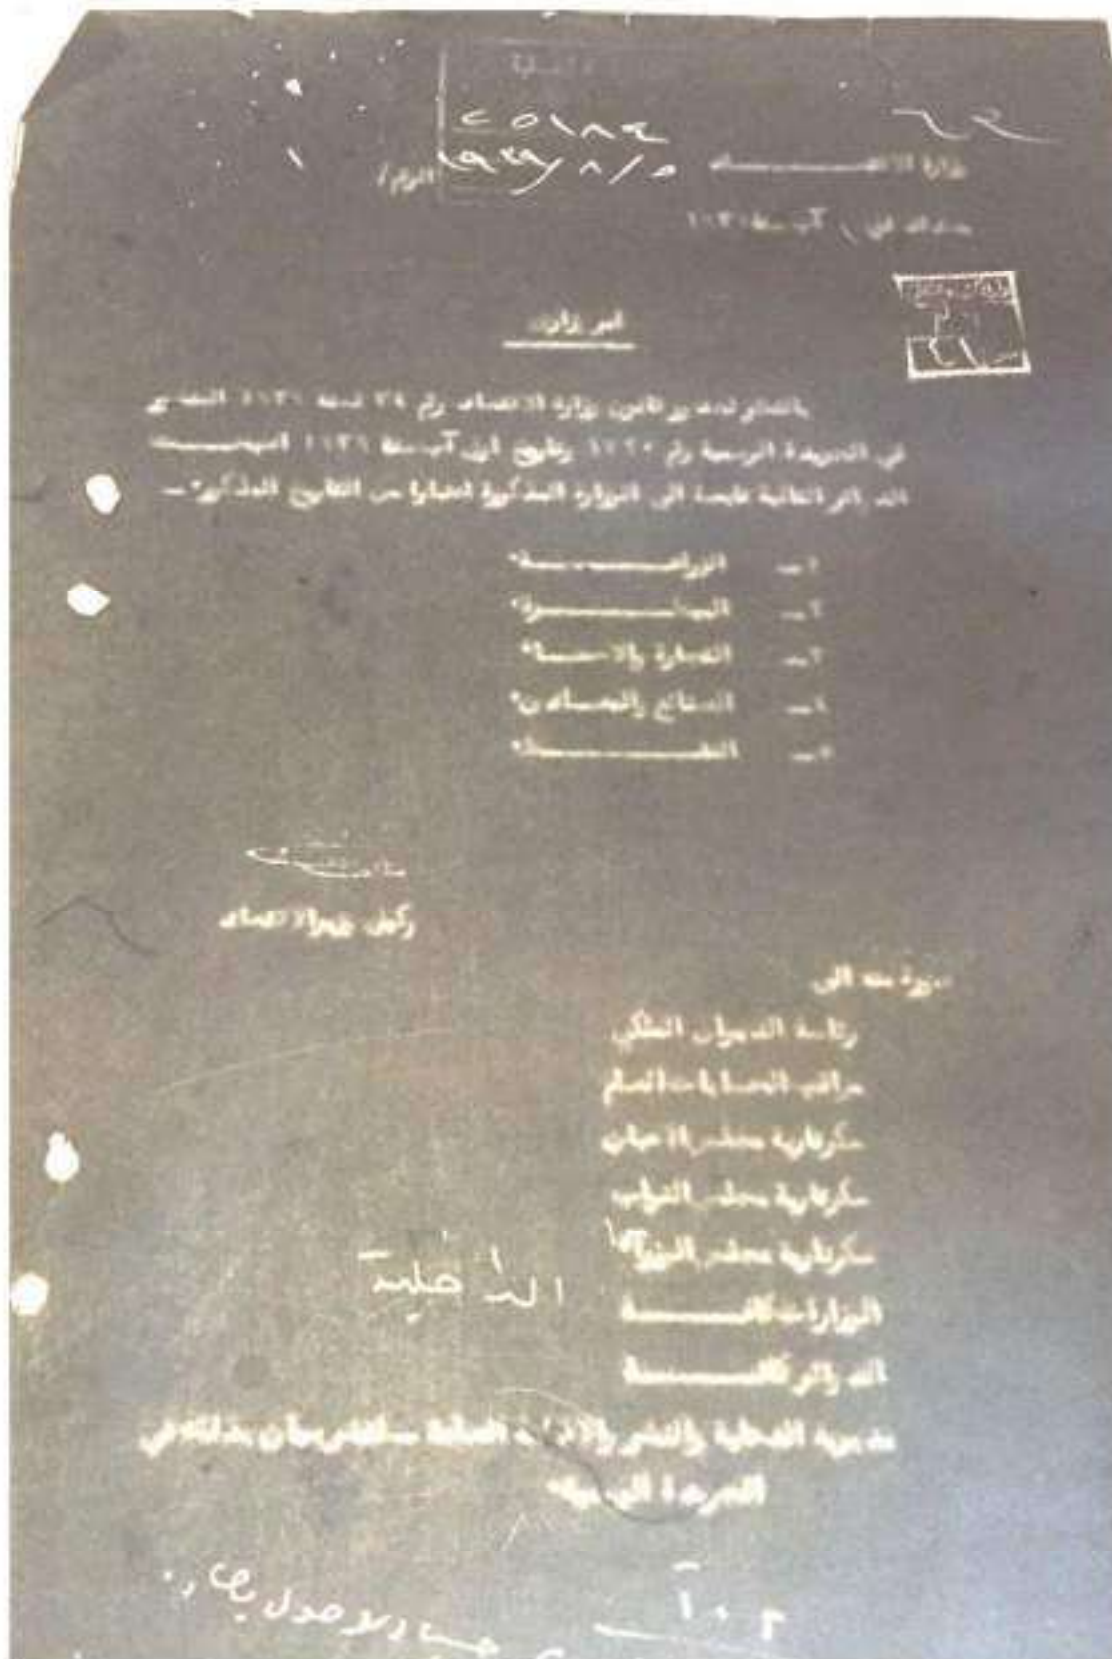 ١٥١٨٤
١٩٣٩/٨/٥
وزارة الاقتصـــــــاد
الرقم/
بغداد في آب سنة ١٩٣٩
امر وزاري
بالنظر لصدور قانون وزارة الاقتصاد رقم ٣٤ لسنة ١٩٣٩ المنشور
في الجريدة الرسمية رقم ١٧٢٠ وتاريخ اول آب سنة ١٩٣٩ اصبحـــت
الدوائر التالية تابعة الى الوزارة المذكورة اعتبارا من التاريخ المذكور ــ
١ــ الزراعـــــــة
٢ــ البيطـــــــرة
٣ــ التجارة والاحصاء
٤ــ الصنائع والمعـادن
٥ــ النفـــــــط
وكيل وزير الاقتصاد
صورة منه الى
رئاسة الديوان الملكي
مراقب الحسابات العام
سكرتارية مجلس الاعيان
سكرتارية مجلس النواب
سكرتارية مجلس الوزراء
الوزارات كافــــــة
الداخلية
الدوائر كافــــــة
مديرية الدعاية والنشر والاذاعة العامة ــ لنشر بيان بذلك في
الجريدة الرسمية